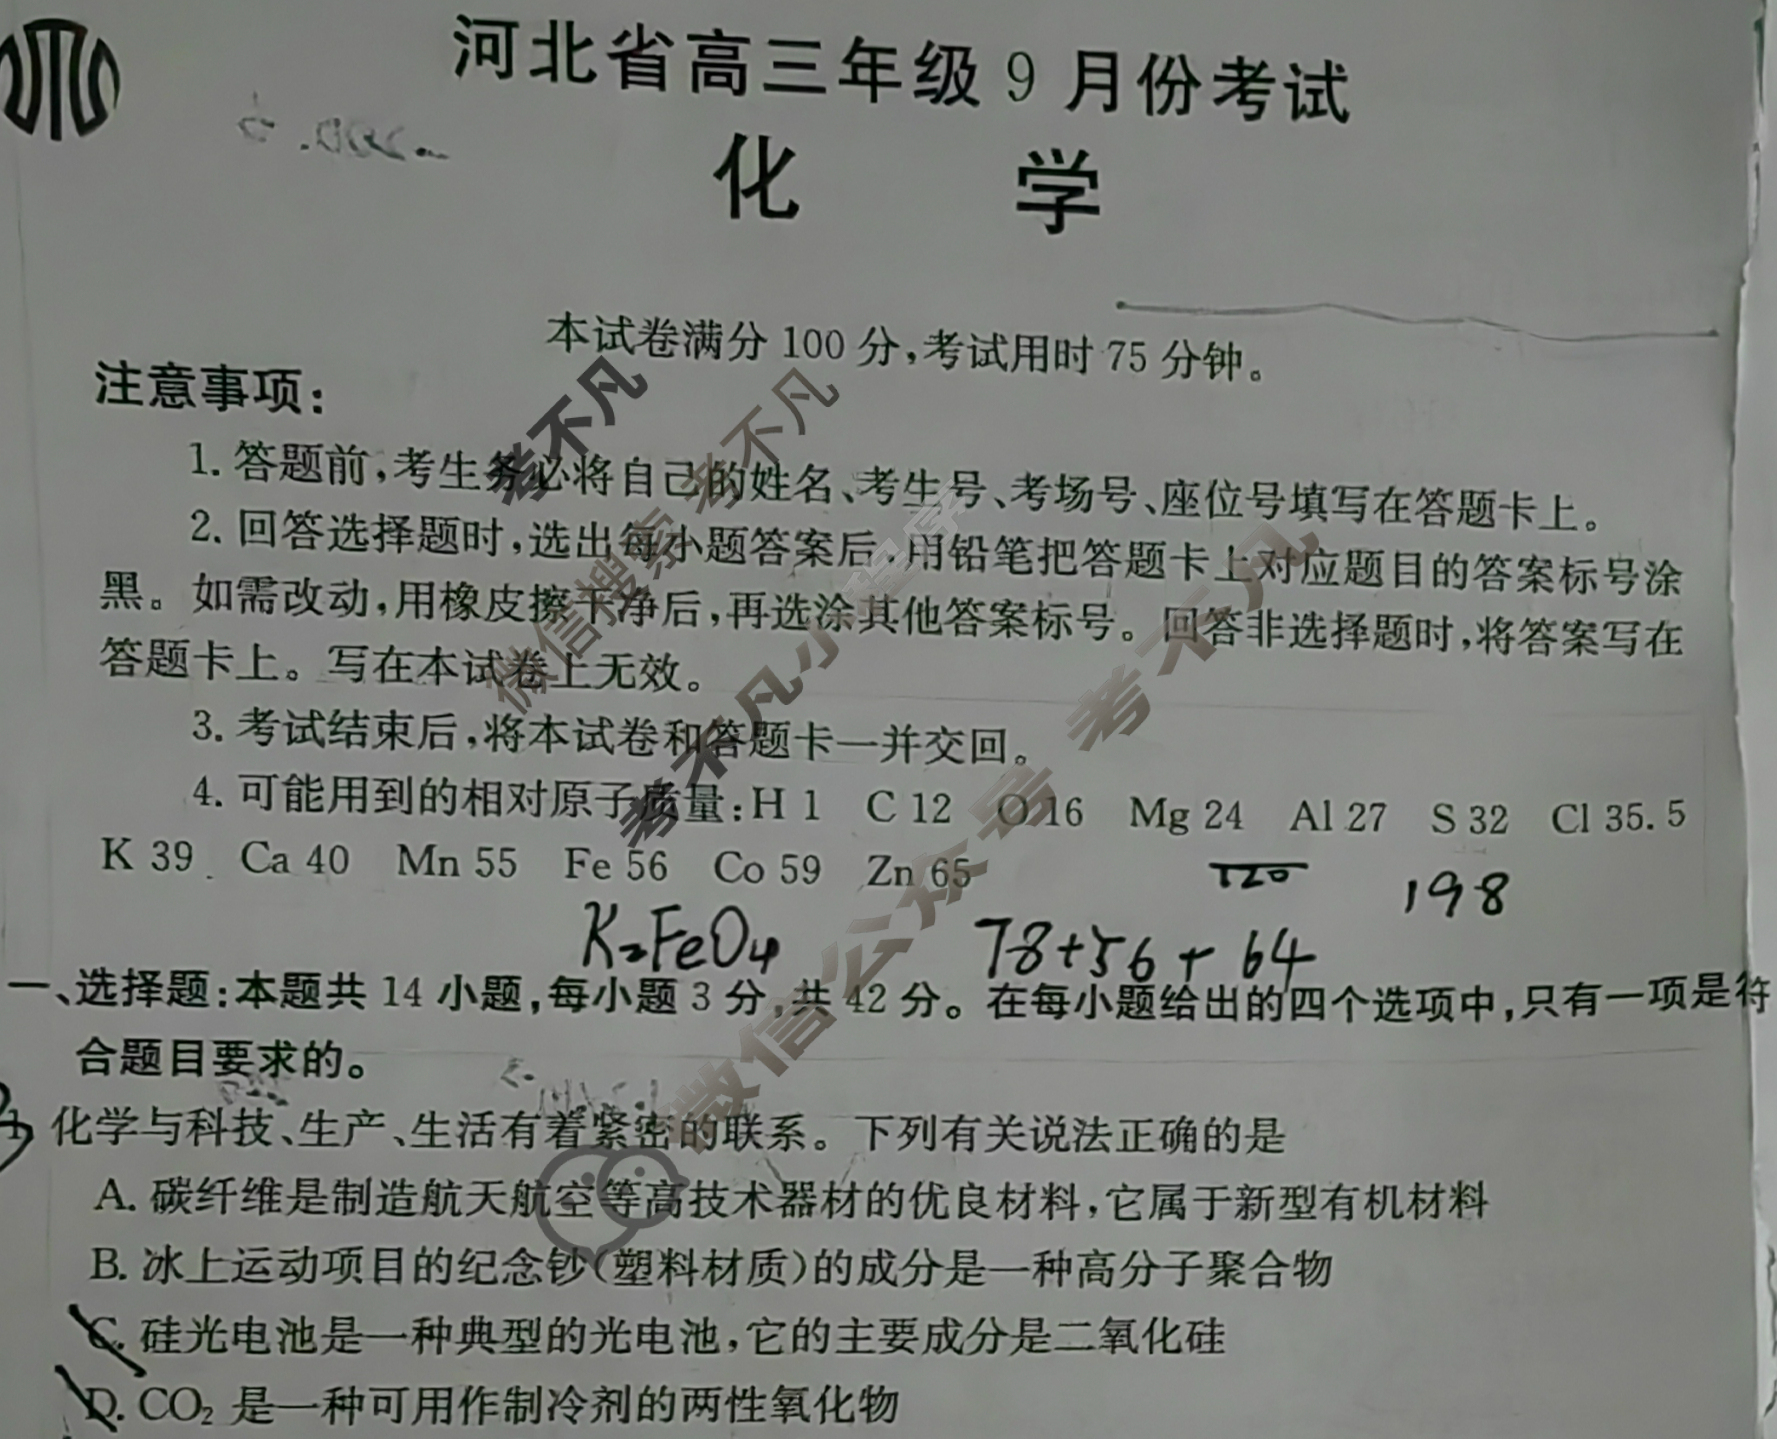 河北省高三年级9月份考试
化 学
本试卷满分100分,考试用时75分钟。
注意事项:
1. 答题前,考生务必将自己的姓名、考生号、考场号、座位号填写在答题卡上。
2. 回答选择题时,选出每小题答案后,用铅笔把答题卡上对应题目的答案标号涂
黑。如需改动,用橡皮擦干净后,再选涂其他答案标号。回答非选择题时,将答案写在
答题卡上。写在本试卷上无效。
3. 考试结束后,将本试卷和答题卡一并交回。
4. 可能用到的相对原子质量:H 1 C 12 O 16 Mg 24 Al 27 S 32 Cl 35.5
K 39 Ca 40 Mn 55 Fe 56 Co 59 Zn 65
120 198
K₂FeO₄ 78+56+64
一、选择题:本题共14小题,每小题3分,共42分。在每小题给出的四个选项中,只有一项是符
合题目要求的。
化学与科技、生产、生活有着紧密的联系。下列有关说法正确的是
A. 碳纤维是制造航天航空等高技术器材的优良材料,它属于新型有机材料
B. 冰上运动项目的纪念钞(塑料材质)的成分是一种高分子聚合物
C. 硅光电池是一种典型的光电池,它的主要成分是二氧化硅
D. CO₂ 是一种可用作制冷剂的两性氧化物
考不凡
微信搜索 考不凡
考不凡小程序
微信公众号 考不凡